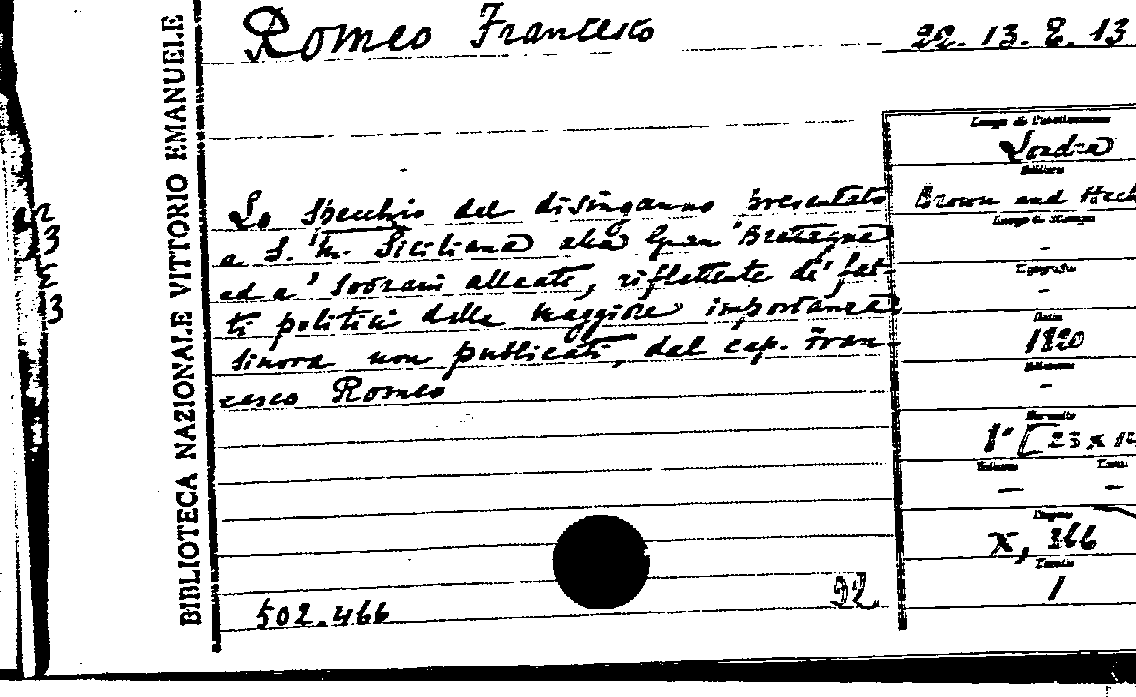 BIBLIOTECA NAZIONALE VITTORIO EMANUELE
Romeo Francesco
22. 13. 8. 13
Lo specchio del disinganno presentato
a S. M. Siciliana alla Gran Bretagna
ed a' sovrani alleati, riflettente di' fat-
ti politici della maggiore importanza
sinora non publicati, dal cap. Fran
cesco Romeo
502.466
Londra
Editore
Brown and
Luogo di stampa
-
Tipografia
-
Data
1820
Edizione
-
Formato
Volume
— —
Pagine
X, 366
Tavole
1